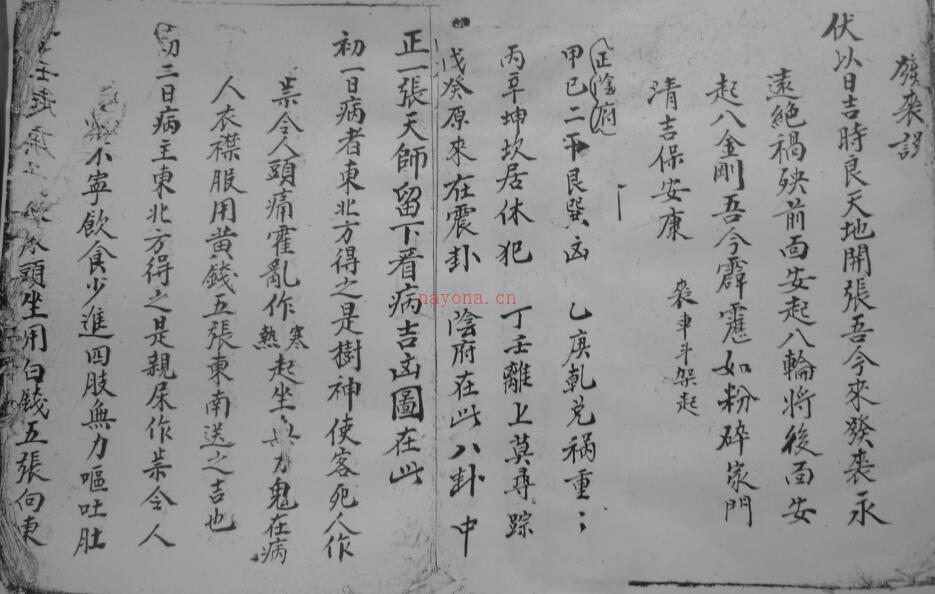 發来謬
伏以日吉時良天地開張吾今來發喪永
遠絕禍殃前面安起八輪將後面安
起八金剛吾今霹靂如粉碎家門
清吉保安康 喪車斗架起
正陰府
甲己二干艮巽凶 乙庚乾兑禍重ミ
丙辛坤坎居休犯 丁壬離上莫尋踪
戊癸原來在震卦 陰府在此八卦中
正一張天師留下看病吉凶圖在此
初一日病者東北方得之是樹神使客死人作
祟令人頭痛霍亂作寒熱起坐 力鬼在病
人衣襟服用黄錢五張東南送之吉也
初三日病主東北方得之是親床作祟令人
不寧飲食少進四肢無力嘔吐肚
頭坐用白錢五張向東
nayona.cn